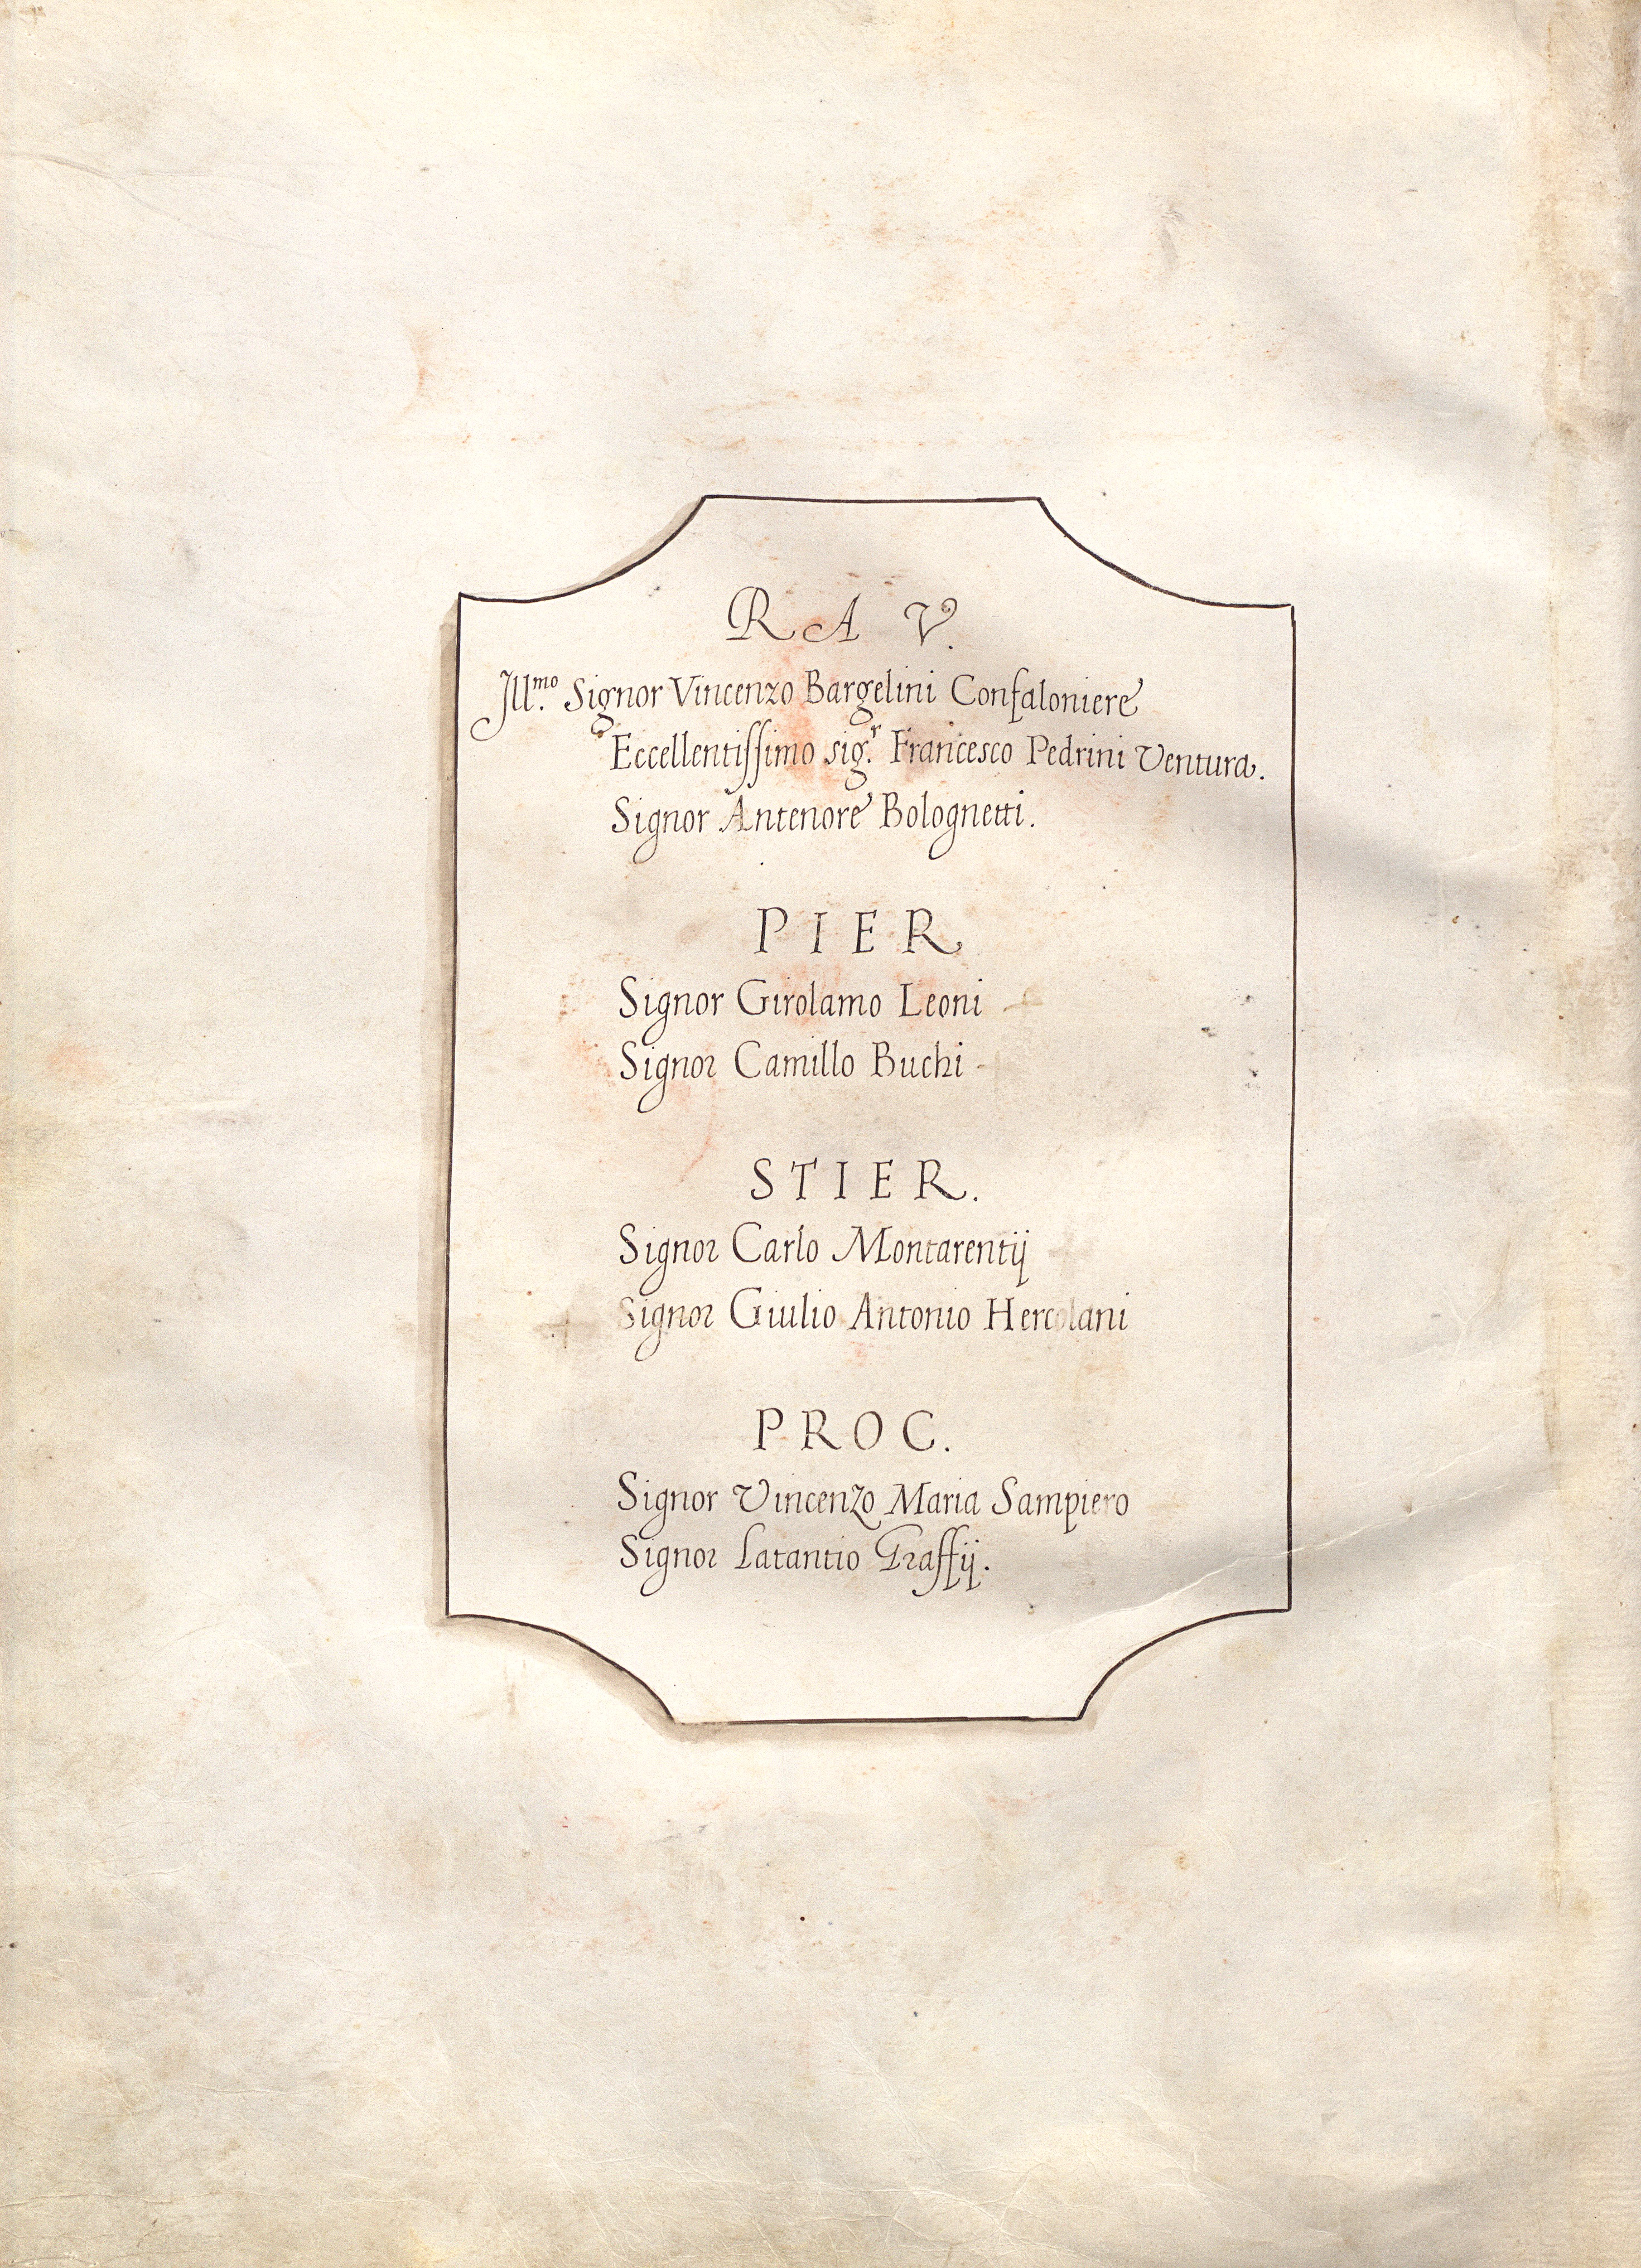 RA V.
Ill.mo Signor Vincenzo Bargelini Confaloniere
Eccellentissimo sig.r Francesco Pedrini Ventura.
Signor Antenore Bolognetti.
PIER
Signor Girolamo Leoni
Signor Camillo Buchi
STIER.
Signor Carlo Montarentij
Signor Giulio Antonio Hercolani
PROC.
Signor Vincenzo Maria Sampiero
Signor Latantio Graffij.